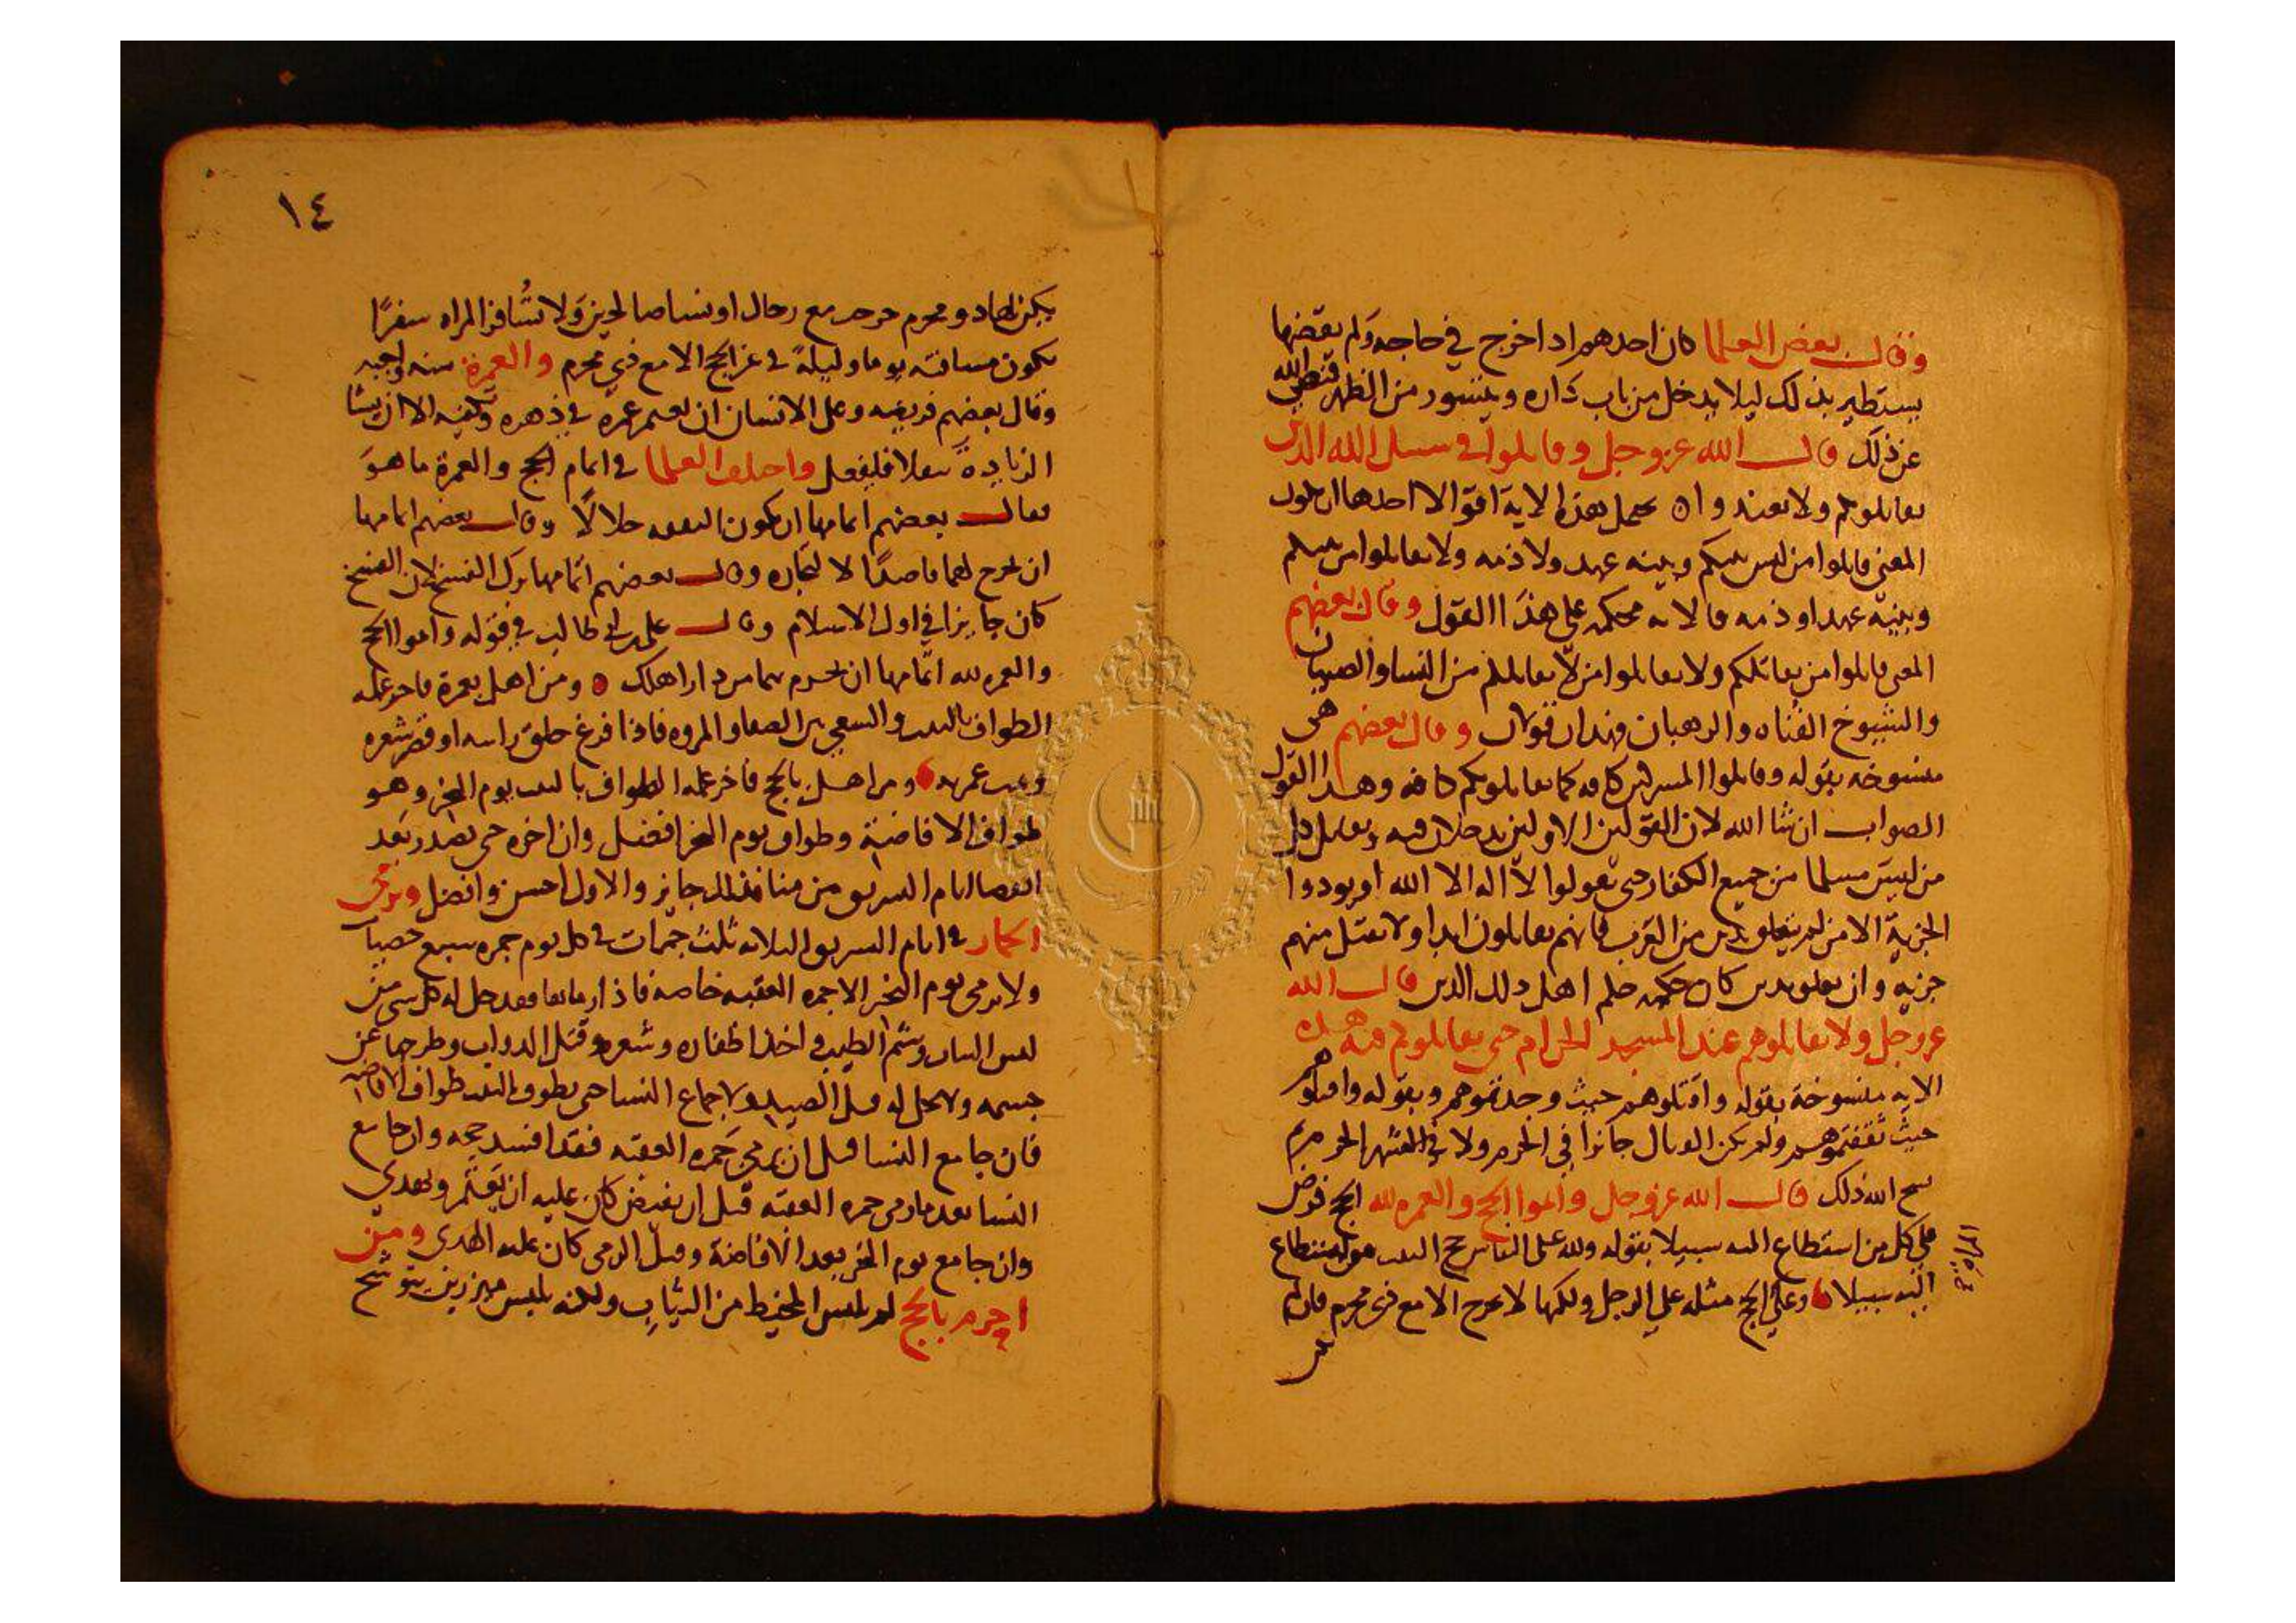 وقال بعض العلما كان احدهم اذا خرج في حاجه ولم يقضها
يستطير بذلك ليلا يدخل من باب داره ويتسور من الظهر فنهى الله
عن ذلك قال الله عز وجل وقاتلوا في سبيل الله الذين
يقاتلونكم ولا تعتدوا ٥ يحتمل هذه الاية اقوالا احدها ان يكون
المعنى قاتلوا من ليس بينكم وبينه عهد ولا ذمه ولا تقاتلوا من بينكم
وبينه عهد او ذمه فالايه محكمه على هذا القول وقال بعضهم
المعنى قاتلوا من يقاتلكم ولا تقاتلوا من لا يقاتلكم من النسا والصبيان
والشيوخ الفناه والرهبان فهذان قولان وقال بعضهم هي
منسوخه بقوله وقاتلوا المشركين كافه كما يقاتلونكم كافه وهذا القول
الصواب ان شا الله لان القولين الاولين يدخلان فيه ويقاتل كل
من ليس مسلما من جميع الكفار حتى يقولوا لا اله الا الله او يودوا
الجزية الا من لم يتعلق بدين من العرب فانهم يقاتلون ابدا ولا تقبل منهم
جزيه وان تعلق بدين كان حكمه حكم اهل ذلك الدين قال الله
عز وجل ولا تقاتلوهم عند المسجد الحرام حتى يقاتلوكم فيه هذه
الايه منسوخة بقوله واقتلوهم حيث وجدتموهم وبقوله واقتلوهم
حيث ثقفتموهم ولم يكن القتال جائزا في الحرم ولا في الشهر الحرم ثم
نسخ الله ذلك قال الله عز وجل واتموا الحج والعمره لله الحج فرض
على كل من استطاع اليه سبيلا بقوله ولله على الناس حج البيت من استطاع
اليه سبيلا وعلى الحج مثله على الرجل ولكنها لا تخرج الا مع ذي محرم فان لم
١٤
يكن لها ذو محرم خرجت مع رجال او نسا صالحين ولا تسافر المراه سفرًا
يكون مسافته يوما وليلة في غير الحج الا مع ذي محرم والعمرة سنه واجبه
وقال بعضهم فريضه وعلى الانسان ان يعتمر عمره في دهره وتكفيه الا ان يشا
الزيادة تنفلا فليفعل واختلف العلما في اتمام الحج والعمرة ما هو
فقال بعضهم اتمامها ان تكون النفقه حلالًا وقال بعضهم اتمامها
ان يخرج لهما قاصدًا لا لتجاره وقال بعضهم اتمامها ترك الفسخ لان الفسخ
كان جايزا في اول الاسلام وقال علي بن ابي طالب في قوله واتموا الحج
والعمره لله اتمامها ان تحرم بهما من دار اهلك ٥ ومن اهل بعمرة فاخر عمله
الطواف بالبيت والسعي بين الصفا والمروه فاذا فرغ حلق راسه او قصر شعره
وتمت عمرته ومن اهل بالحج فاخر عمله الطواف بالبيت يوم النحر وهو
طواف الافاضة وطواف يوم النحر افضل وان اخره حتى يصدر بعد
انقضا ايام التشريق من منا فذلك جايز والاول احسن وافضل وترمى
الجمار في ايام التشريق الثلاثه ثلث جمرات في كل يوم جمره سبع حصيات
ولا يرمى يوم النحر الا جمره العقبه خاصه فاذا رماها فقد حل له كل شي من
لبس الثياب وشم الطيب واخذ اظفاره وشعره وقتل الدواب وطرحها عن
جسمه ولا يحل له قتل الصيد ولا جماع النسا حتى يطوف بالبيت طواف الافاضه
فان جامع النسا قبل ان يرمي جمره العقبه فقد افسد حجه وان جامع
النسا بعد ما رمى جمره العقبه قبل ان يفيض كان عليه ان يعتمر ويهدي
وان جامع يوم النحر بعد الافاضة وقبل الرمى كان عليه الهدي ومن
احرم بالحج لم يلبس المخيط من الثياب ولكنه يلبس ميزرين يتوشح